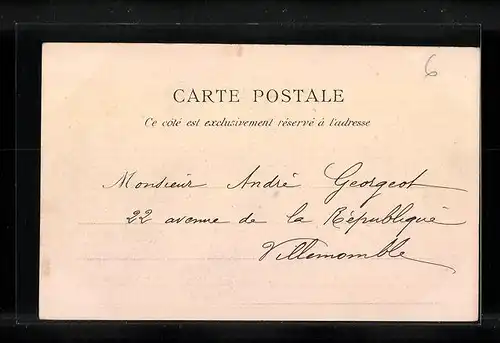 6
CARTE POSTALE
Ce côté est exclusivement réservé à l'adresse
Monsieur André Georgeot
22 avenue de la République
Villemomble